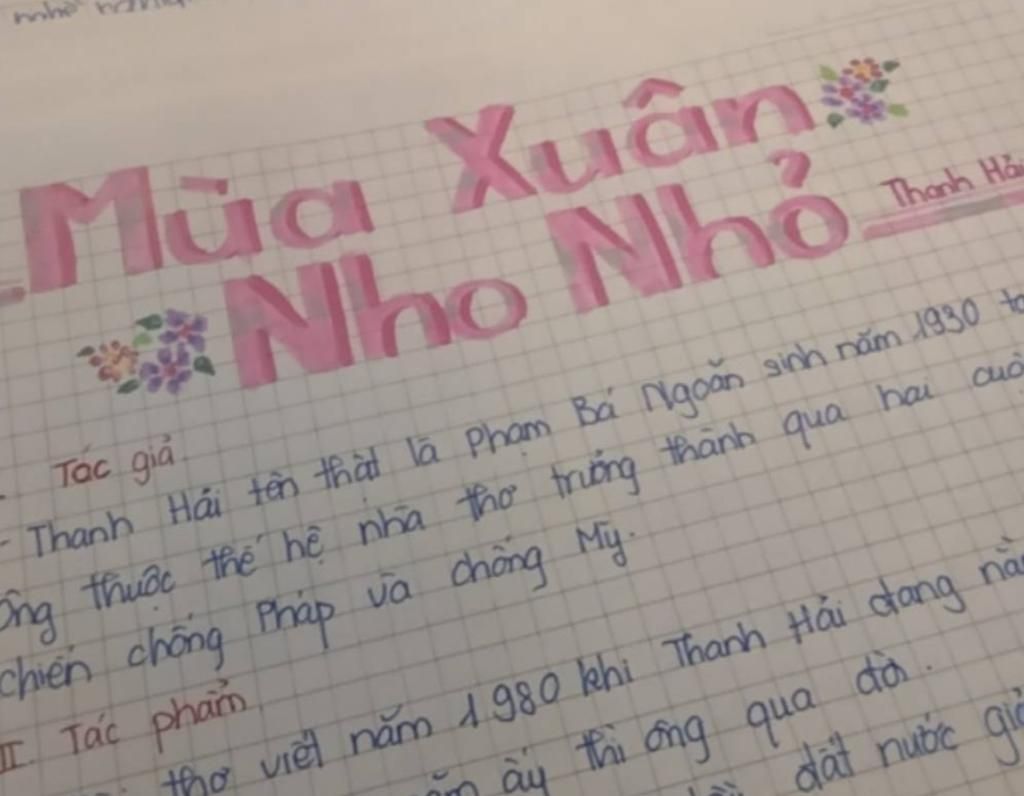 Mùa Xuân
Nho Nhỏ
Thanh Hải
Tác giả
- Thanh Hải tên thật là Phạm Bá Ngoãn sinh năm 1930
Ông thuộc thế hệ nhà thơ trưởng thành qua hai
chiến chống Pháp và chống Mỹ.
II. Tác phẩm
thơ viết năm 1980 khi Thanh Hải đang
ấy thì ông qua đời.
đất nước